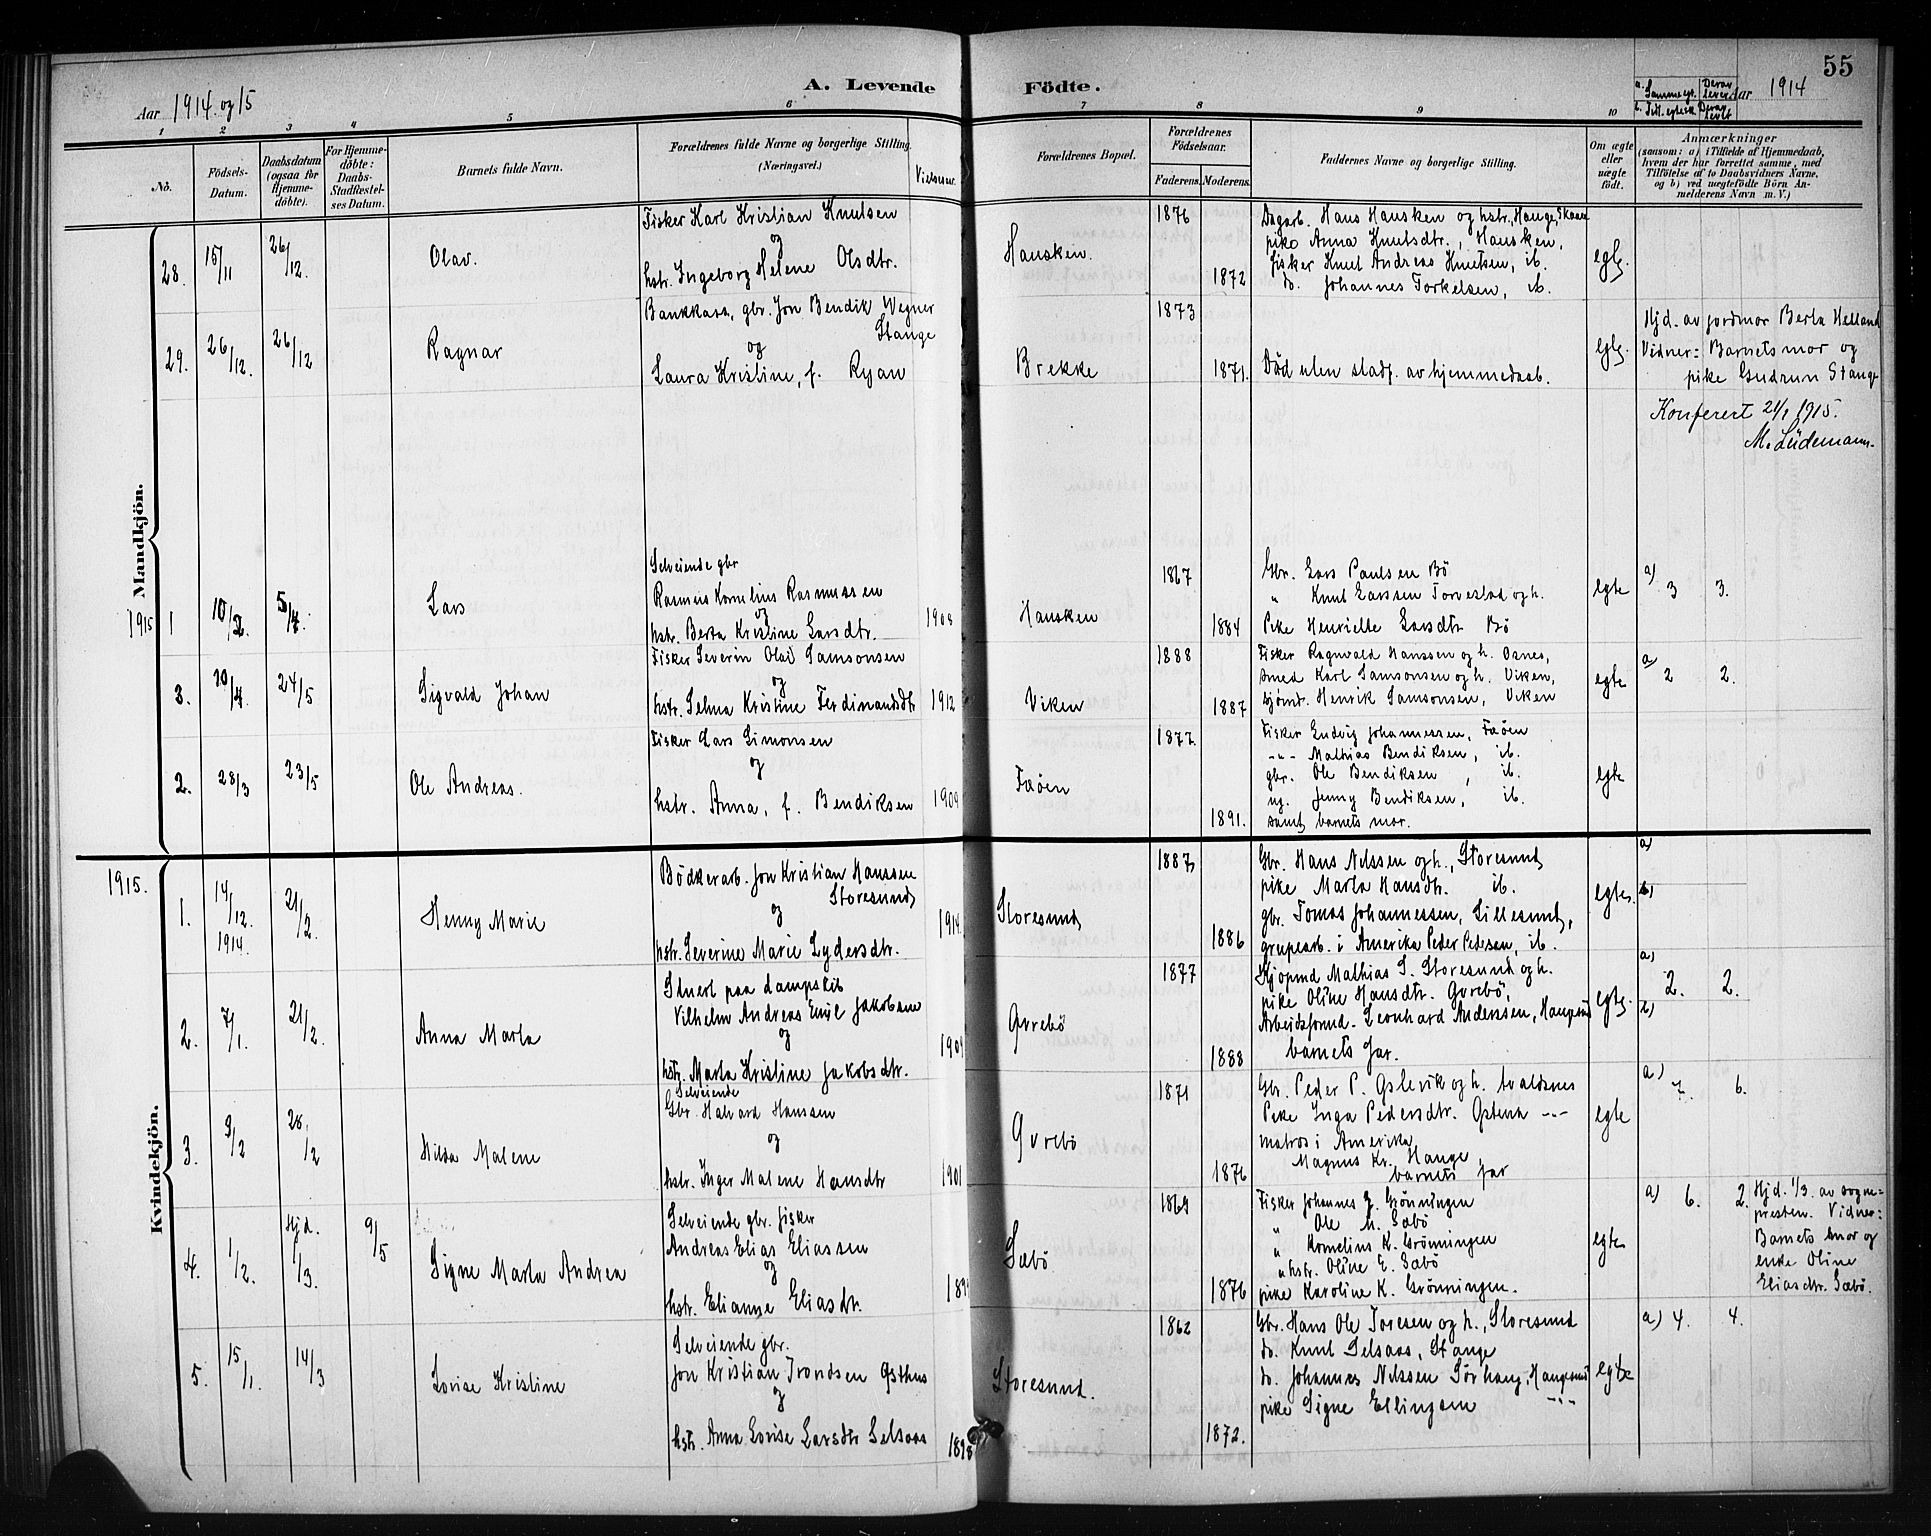 55
A. Levende Födte.
Aar 1914 og 15
a. Sammegt. Derav lever
b. Derav levet
Aar 1914
1 2 3 4 5 6 7 8 9 10
No.
Födsels-Datum.
Daabsdatum (ogsaa for Hjemme-döbte).
For Hjemme-döbte: Daabs-Stadfæstel-ses Datum.
Barnets fulde Navn.
Forældrenes fulde Navne og borgerlige Stilling. (Næringsvei.)
Vielsesaar.
Forældrenes Bopæl.
Forældrenes Födselsaar.
Faderens. Moderens.
Faddernes Navne og borgerlige Stilling.
Om ægte eller uægte födt.
Anmærkninger
(saasom: a) i Tilfælde af Hjemmedaab, hvem der har forrettet samme, med Tilföielse af to Daabsvidners Navne, og b) ved uægtefödte Börn An-melderens Navn m. V.)
Mandkjön.
28. 15/11 26/12. Olav.
Fisker Karl Kristian Knutsen
og
hstr. Ingeborg Helene Olsdtr.
Hausken. 1876 1872
Dagarb. Hans Hausken og hstr., Hauge, Skaare
pike Anna Knutsdtr., Hausken,
fisker Knut Andreas Knutsen, ib.
do. Johannes Torkelsen, ib.
egte
29. 26/12. 26/12 Ragnar
Bankkass, gbr. Jon Bendik Wegner
Stange
og
Laura Kristine, f. Ryan
Brekke 1873 1871.
Död uten stadf. av hjemmedaab.
egte
Hjd. av jordmor Berta Helland
Vidner: Barnets mor og
pike Gudrun Stange
Konferert 21/1 1915.
M. Lüdemann.
1915
1 10/2. 5/4. Lars
Selveiende gbr
Rasmus Kornelius Rasmussen
og
hstr. Berta Kristine Larsdtr. 1908
Hausken 1867 1884
Gbr. Lars Paulsen Bö
" Knut Larssen Torvestad og h.
Pike Henriette Larsdtr Bö
egte a) 3 3.
3. 20/4. 24/5 Sigvald Johan
Fisker Severin Olai Samsonsen
og
hstr. Selma Kristine Ferdinandsdtr 1912
Viken 1888 1887
Fisker Ragnvald Hanssen og h. Osnes,
smed Karl Samsonsen og h. Viken,
sjömd. Henrik Samsonsen, Viken
egte a) 2 2.
2. 28/3 23/5 Ole Andreas.
Fisker Lars Simonsen
og
hstr. Anna, f. Bendiksen 1909
Fæöen 1877. 1891.
Fisker Ludvig Johannessen, Fæöen
-"- Mathias Bendiksen, ib.
gbr. Ole Bendiksen, ib.
ug. Jenny Bendiksen, ib.
samt barnets mor.
egte
1915.
Kvindekjön.
1. 14/12. 1914. 21/2. Henny Marie
Bödkerarb. Jon Kristian Hanssen
Storesund
og
hstr. Severine Marie Lydersdtr. 1914.
Storesund 1887 1886
Gbr. Hans Nilssen og h., Storesund
pike Marta Hansdtr. ib.
gbr. Tomas Johannessen, Lillesund,
grupearb. i Amerika Peder Pedersen, ib.
egte a) b)
2. 7/1. 21/2. Anna Marta
Stuert paa dampskib
Vilhelm Andreas Emil Jakobsen
og
hstr. Marta Kristine Jakobsdtr.
Gvrebö 1877 1888
Kjöpmd Mathias S. Storesund og h.
pike Oline Hansdtr. Gvrebö,
Arbeidsformd. Leonhard Anderssen, Haugesund
barnets far.
egte. a) 2. 2. b)
3. 9/2 28/2 Hilda Malene
Selveiende
Gbr. Halvard Hanssen
og
hstr. Inger Malene Hansdtr 1901
Gvrebö 1871 1876
Gbr. Peder P. Gslevik og h. Avaldsnes
Pike Inga Pedersdtr. -"-
matros i Amerika
Magnus Kr. Hauge,
barnets far
egte a) 7. 6.
4. 1/2. Hjd. 1/3. 9/5 Signe Marta Andrea
Selveiende gbr. fisker
Andreas Elias Eliassen
og
hstr. Elianne Eliasdtr.
Sæbö 1869 1876
Fisker Johannes J. Grönningen
" Ole M. Sæbö
" Kornelius K. Grönningen
" hstr. Oline E. Sæbö
pike Karoline K. Grönningen.
egte a) 6. 2.
Hjd. 1/3. av sogne=
presten. Vidner:
Barnets mor og
enke Oline
Eliasdtr. Sæbö.
5. 15/1. 14/3 Lovise Kristine
Selveiende gbr.
Jon Kristian Trondsen Østhus
og
hstr. Anna Lovise Larsdtr Selsaas 1898
Storesund. 1862 1872.
Gbr. Hans Ole Toresen og h., Storesund
do. Knut Selsaas, Stange
do. Johannes Nilssen Sörhaug, Haugesund
pike Signe Ellingsen -"-
egte a) 4. 4.